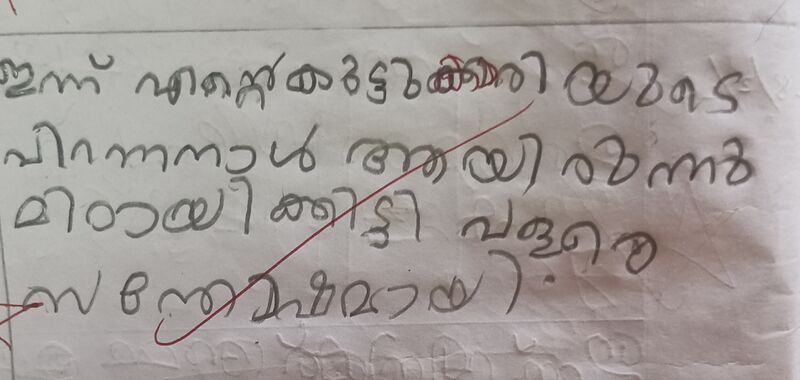 ഇന്ന് എൻ്റെ കുട്ടുകാരിയുടെ
പിറന്നനാൾ ആയിരുന്നു
മിഠായി കിട്ടി വളരെ
സന്തോഷമായി.